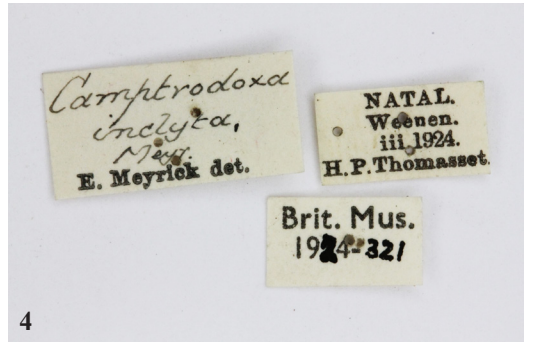 Camptrodoxa
inclyta,
Meyr.
E. Meyrick det.
NATAL.
Weenen.
iii 1924.
H.P. Thomasset.
Brit. Mus.
1924-321
4